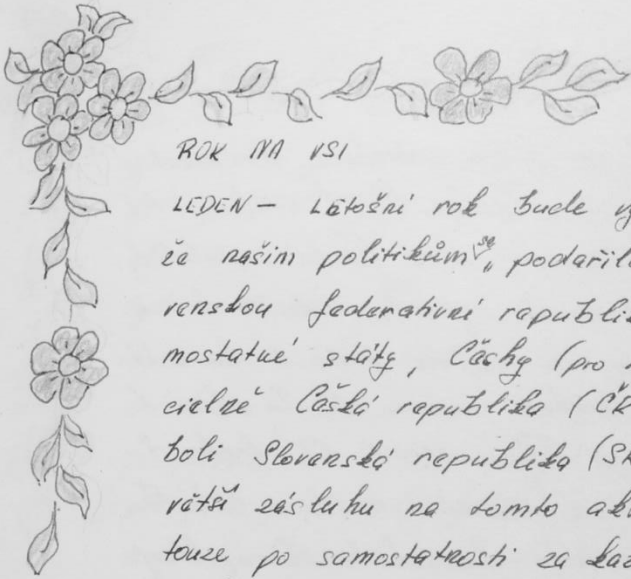 ROK NA VSI
LEDEN - Letošní rok bude vý
že našim politikům se podařil
venskou federativní republik
mostatné státy, Čechy (pro
cielně Česká republika (ČR
boli Slovenská republika (SR
větší zásluhu na tomto ak
touze po samostatnosti za kaž